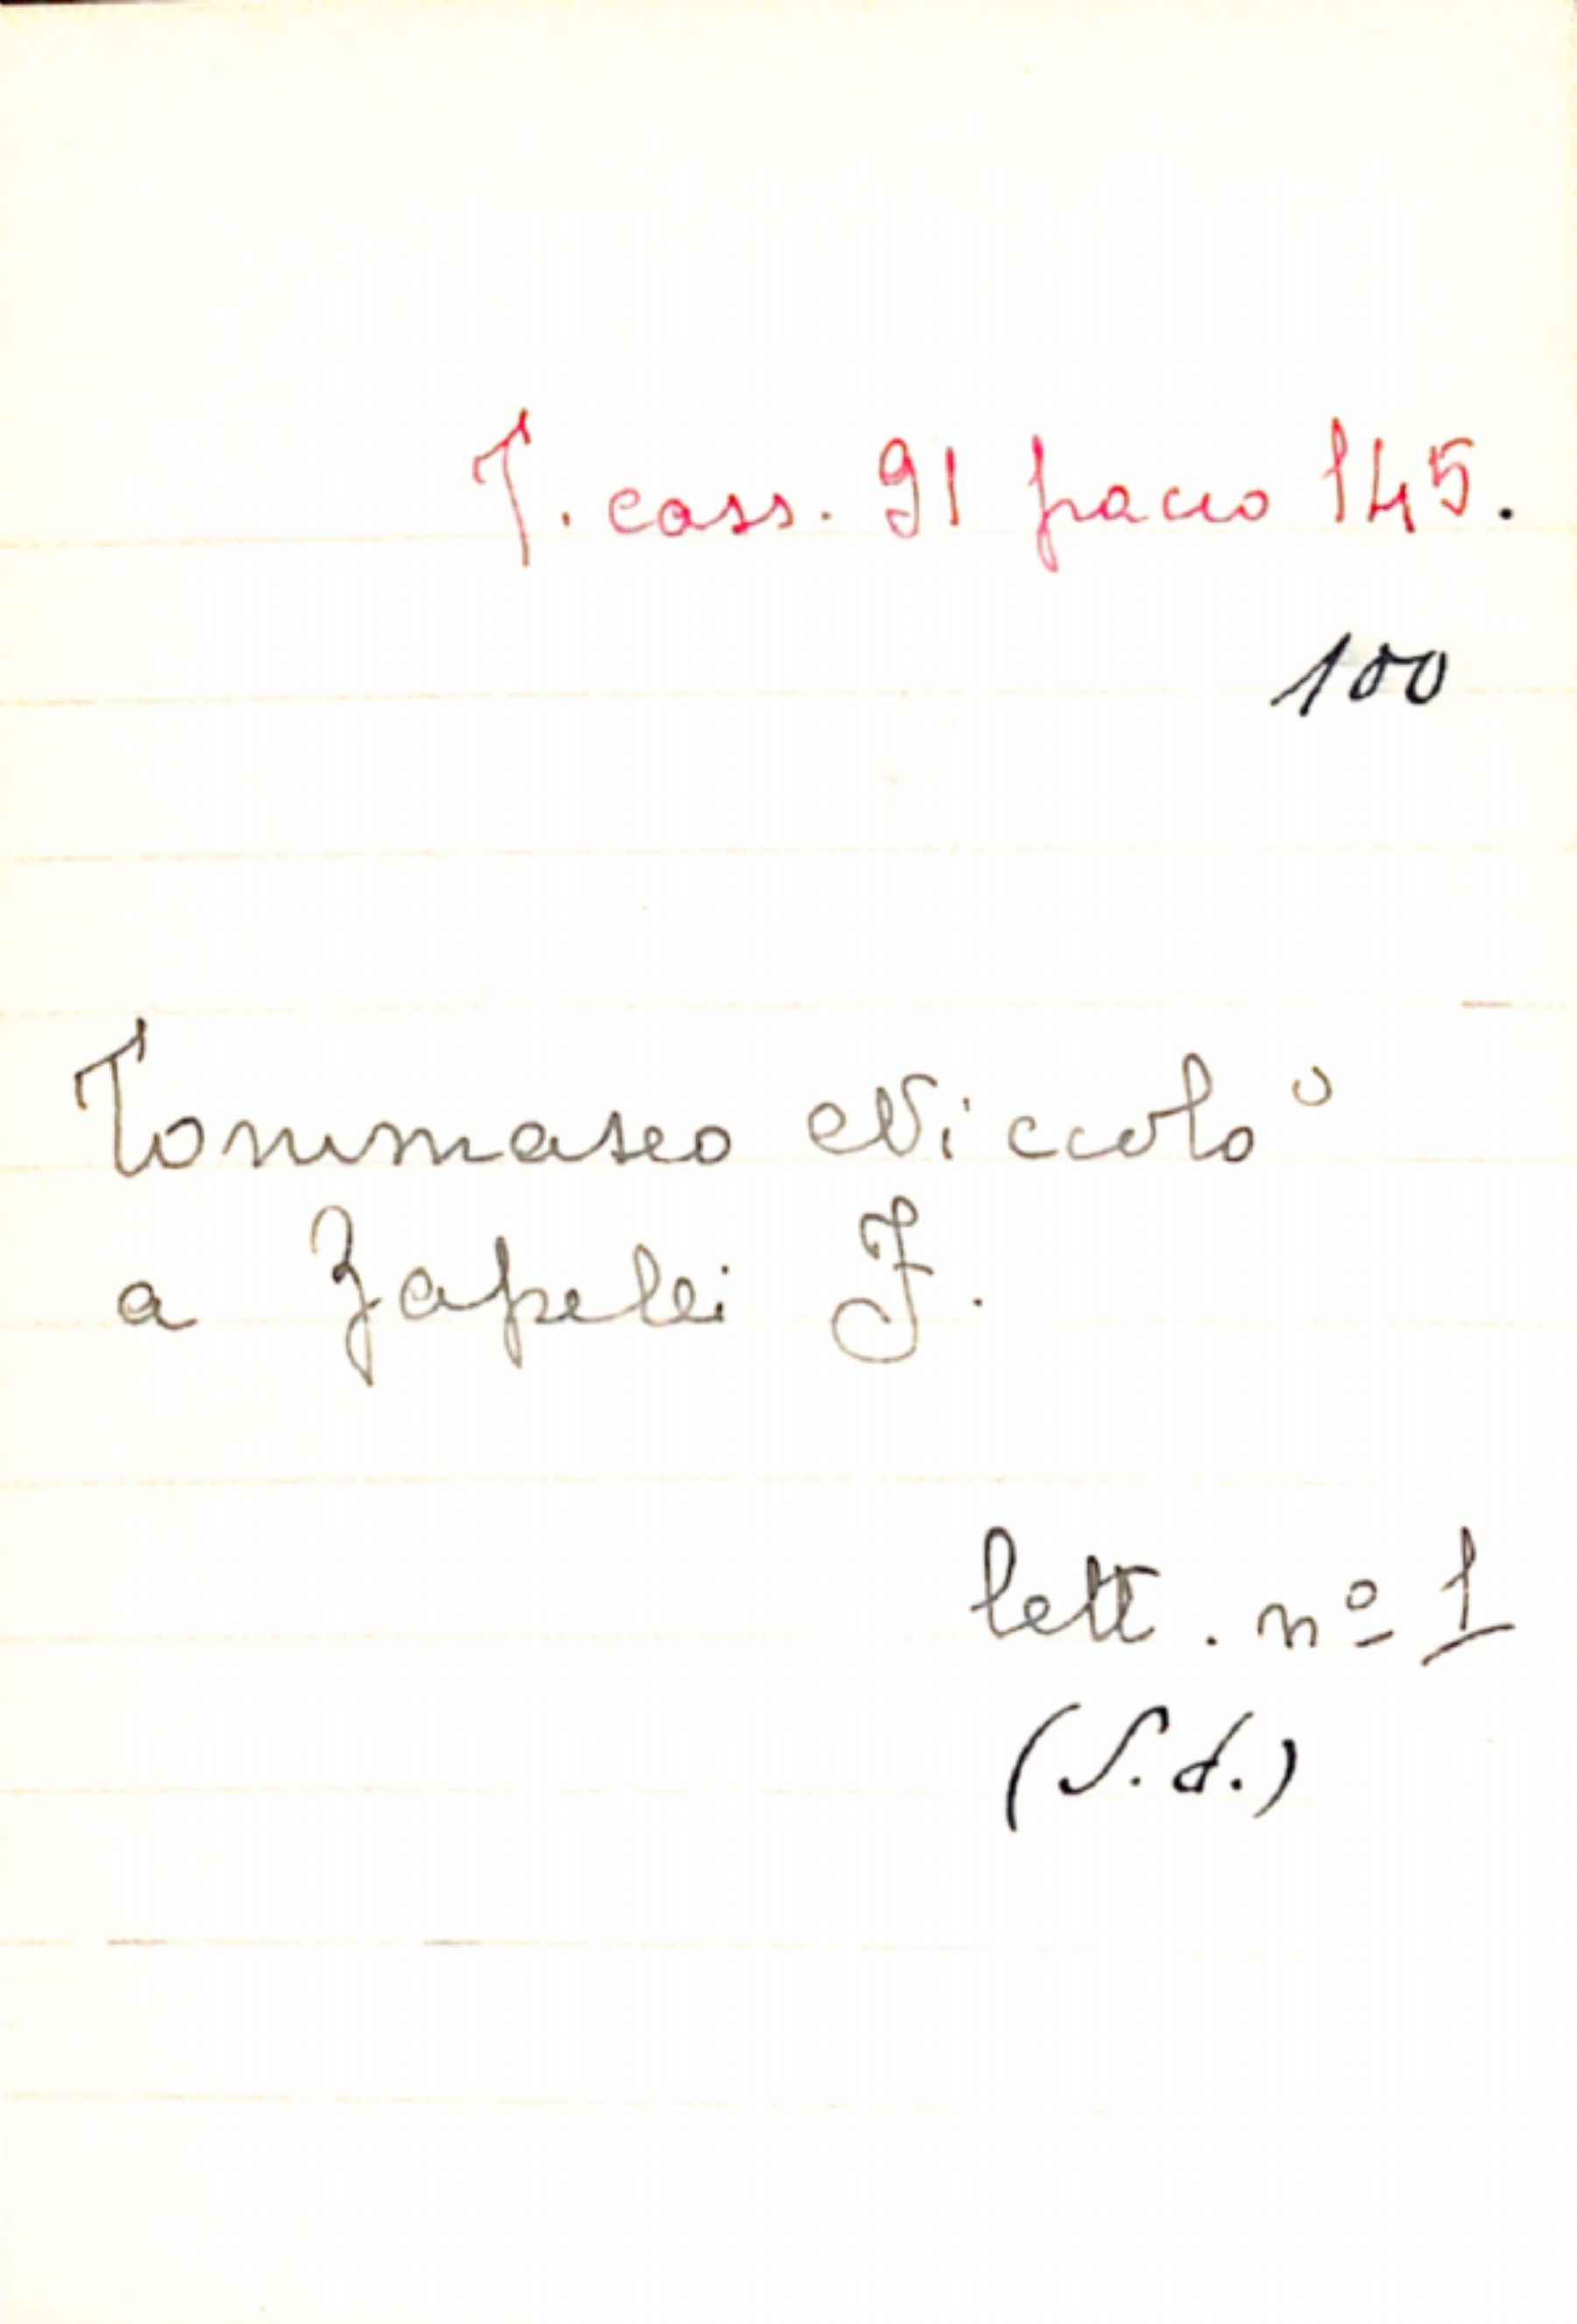 T. cass. 91 pacco 145.
100
Tommaseo Niccolò
a Zapelli F.
lett. nº 1
(S.d.)